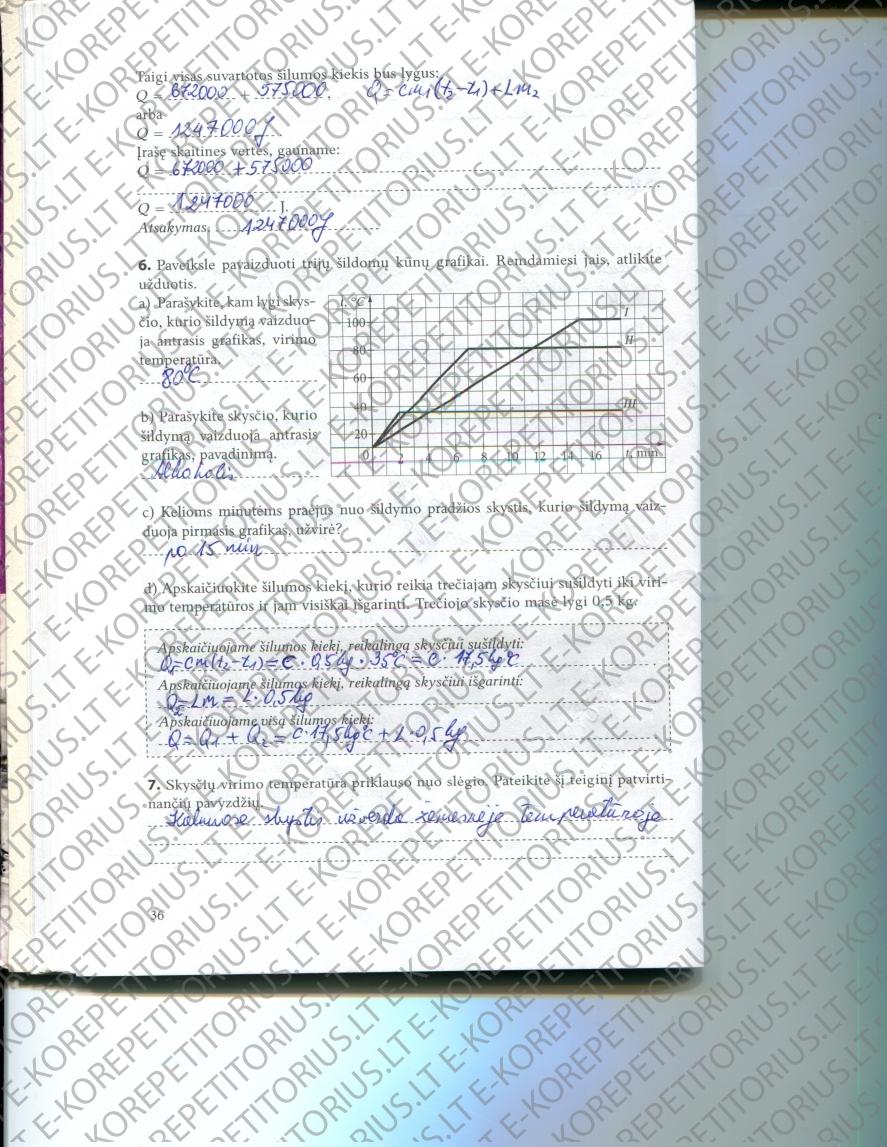 Taigi visas suvartotos šilumos kiekis bus lygus:
Q = 672000 + 575000, Q = cm₁(t₂-t₁)+Lm₂
arba
Q = 1247000 J
Įrašę skaitines vertes, gauname:
Q = 672000 + 575000
Q = 1247000 J.
Atsakymas. 1247000 J
6. Paveiksle pavaizduoti trijų šildomų kūnų grafikai. Remdamiesi jais, atlikite
užduotis.
a) Parašykite, kam lygi skys-
čio, kurio šildymą vaizduo-
ja antrasis grafikas, virimo
temperatūra.
80°C
b) Parašykite skysčio, kurio
šildymą vaizduoja antrasis
grafikas, pavadinimą.
Alkoholis
t, °C
100
80
60
40
20
0 2 4 6 8 10 12 14 16 t, min
I
II
III
c) Kelioms minutėms praėjus nuo šildymo pradžios skystis, kurio šildymą vaiz-
duoja pirmasis grafikas, užvirė?
po 15 min
d) Apskaičiuokite šilumos kiekį, kurio reikia trečiajam skysčiui sušildyti iki viri-
mo temperatūros ir jam visiškai išgarinti. Trečiojo skysčio masė lygi 0,5 kg.
Apskaičiuojame šilumos kiekį, reikalingą skysčiui sušildyti:
Q₁=cm(t₂-t₁)=c·0,5kg·35°C=c·17,5kg°C
Apskaičiuojame šilumos kiekį, reikalingą skysčiui išgarinti:
Q₂=Lm=L·0,5kg
Apskaičiuojame visą šilumos kiekį:
Q=Q₁+Q₂=c·17,5kg°C+L·0,5kg
7. Skysčių virimo temperatūra priklauso nuo slėgio. Pateikite šį teiginį patvirti-
nančių pavyzdžių.
Kalnuose skystis užverda žemesnėje temperatūroje
36
E-KOREPETITORIUS.LT